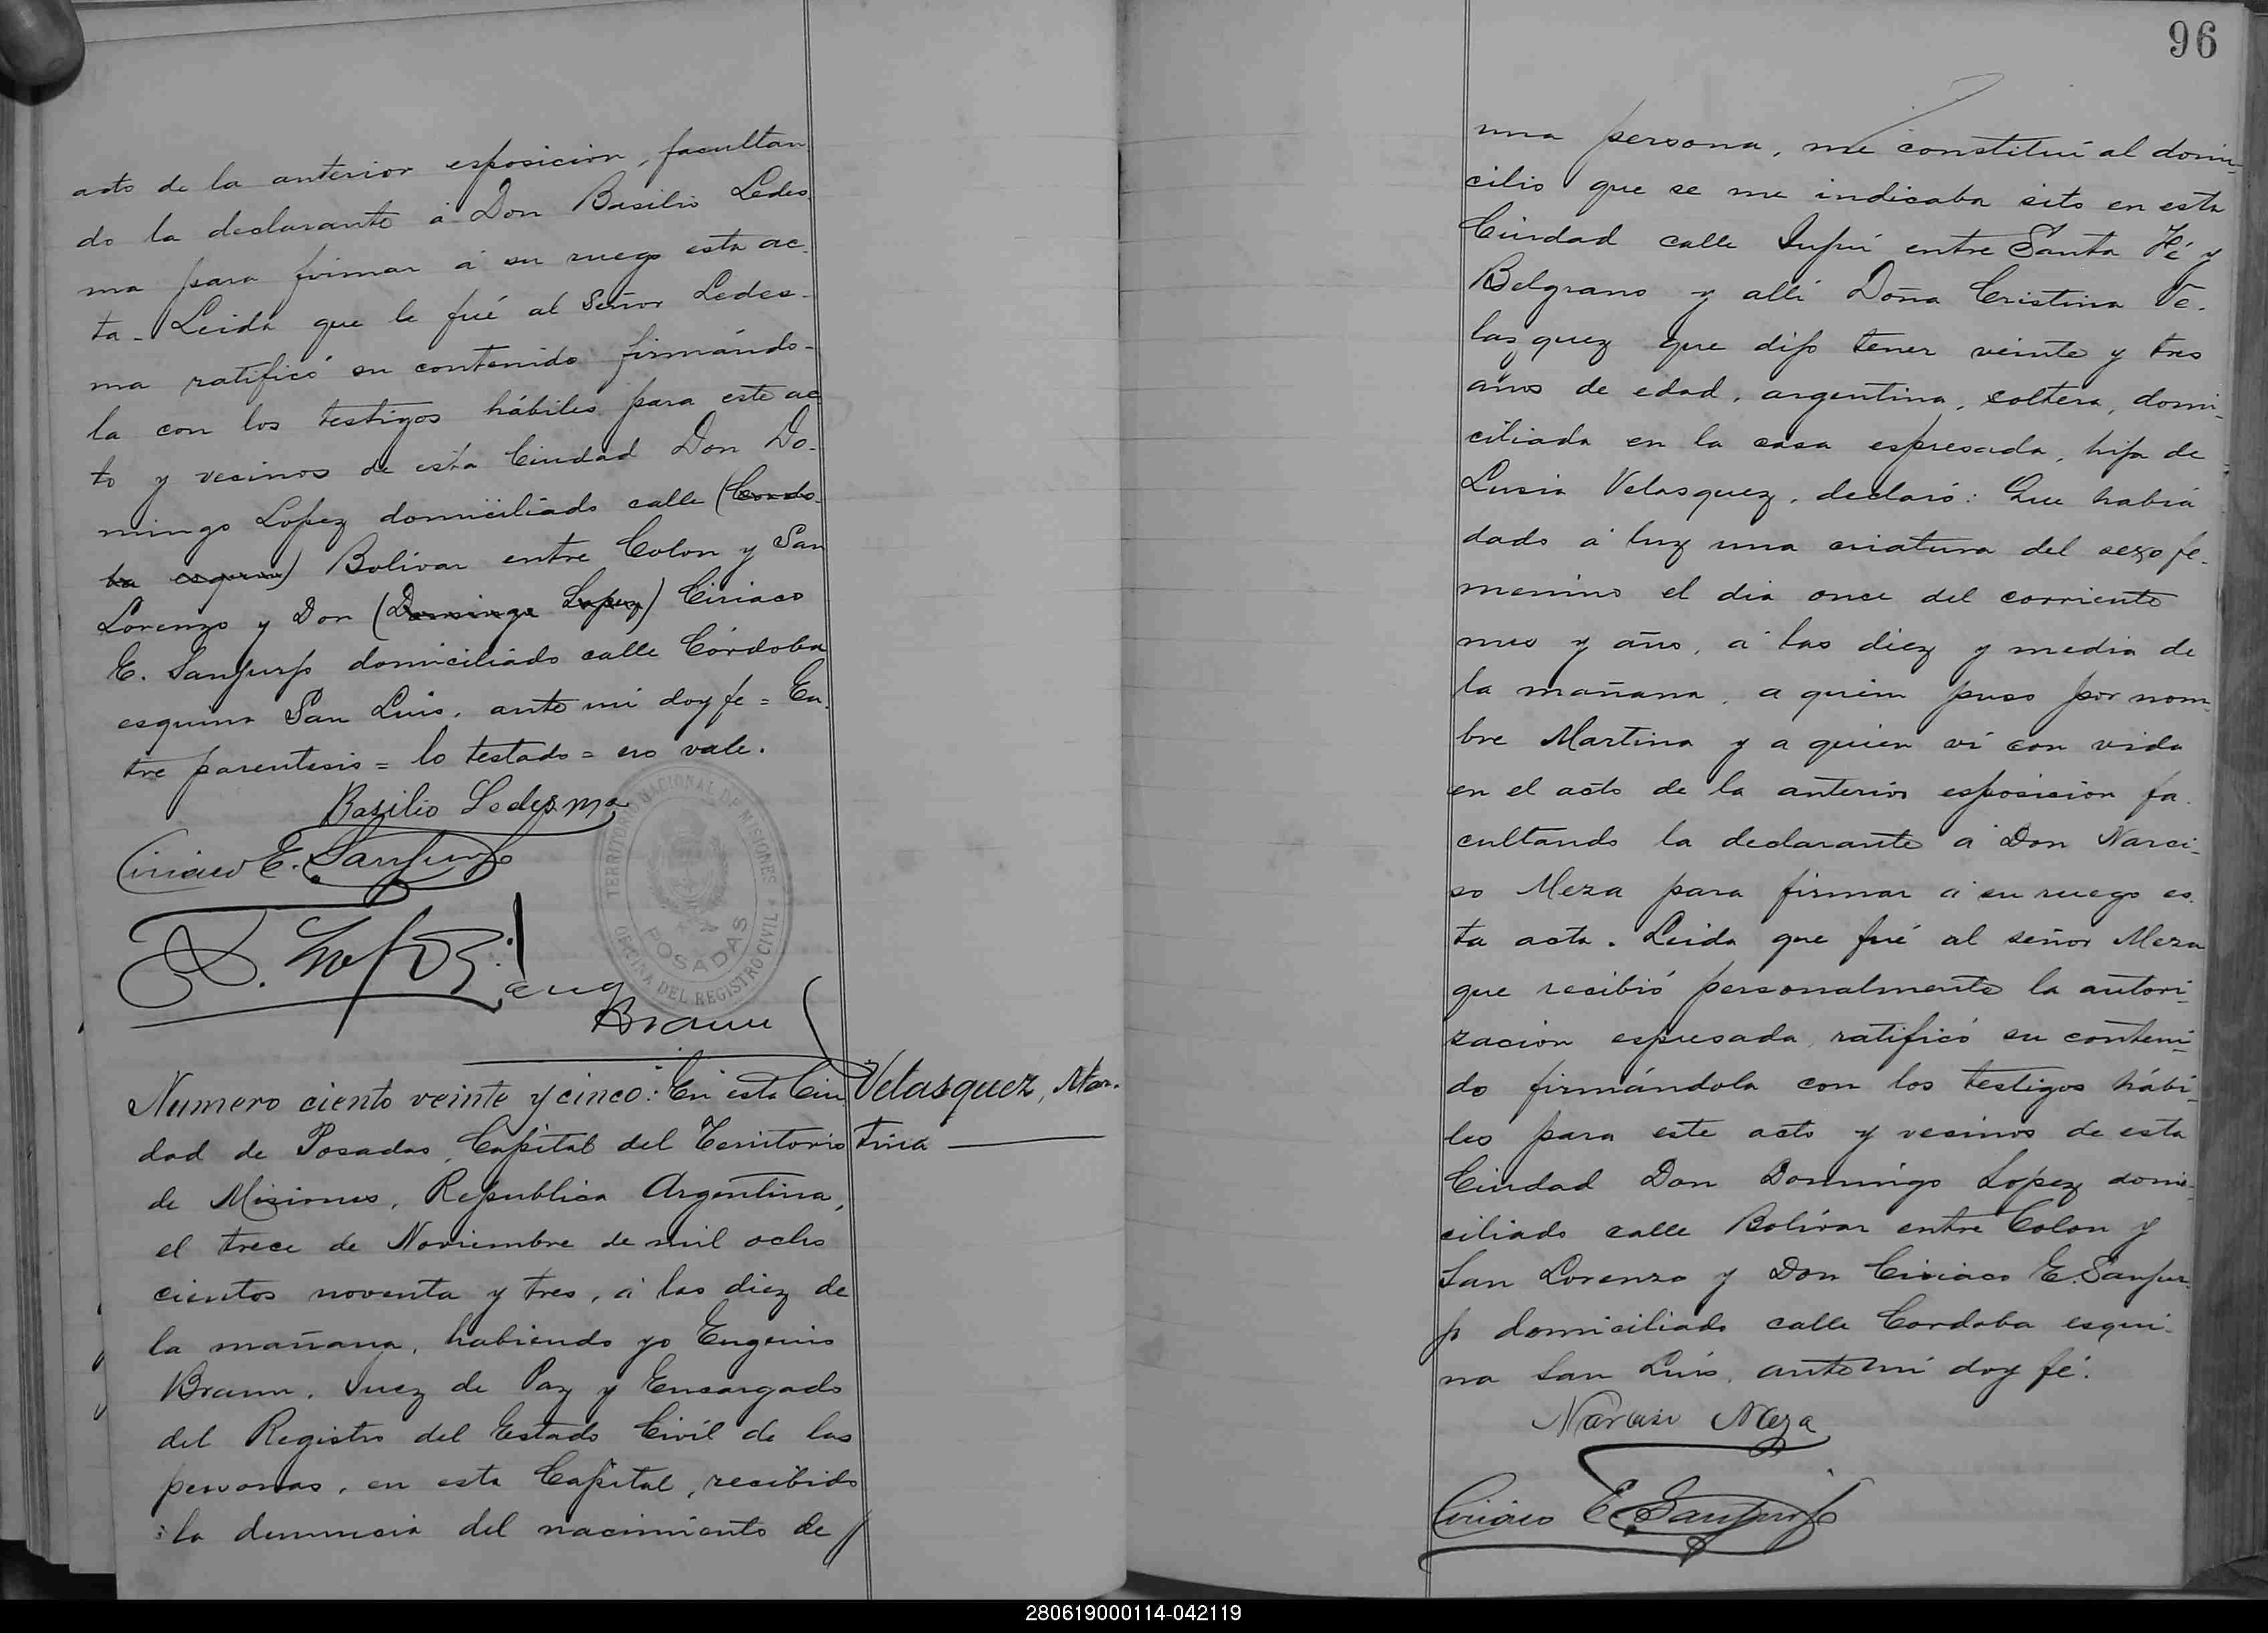 acto de la anterior esposicion, facultan
do la declarante á Don Basilio Ledes
ma para firmar á su ruego esta ac
ta. Leida que le fué al Señor Ledes-
ma ratificó su contenido firmándo-
la con los testigos hábiles para este ac
to y vecinos de esta Ciudad Don Do-
mingo Lopez domiciliado calle (Cordo-
ba esquina) Bolívar entre Colon y San
Lorenzo y Don (Domingo Lopez) Ciriaco
E. Sanjurjo domiciliado calle Córdoba
esquina San Luis, ante mi doy fe = En
tre parentesis = lo testado = no vale.
Basilio Ledesma
Ciriaco E. Sanjurjo
TERRITORIO NACIONAL DE MISIONES
OFICINA DEL REGISTRO CIVIL
POSADAS
D. Lopez
Eug
Braun
Numero ciento veinte y cinco: En esta Ciu
Velasquez, Mar-
dad de Posadas, Capital del Territorio
tina
de Misiones, Republica Argentina,
el trece de Noviembre de mil ocho
cientos noventa y tres, á las diez de
la mañana, habiendo yo Eugenio
Braun, Juez de Paz y Encargado
del Registro del Estado Civil de las
personas, en esta Capital, recibido
la denuncia del nacimiento de
96
una persona, me constituí al domi-
cilio que se me indicaba sito en esta
Ciudad calle Jujuí entre Santa Fé y
Belgrano y allí Doña Cristina Ve-
lazquez que dijo tener veinte y tres
años de edad, argentina, soltera, domi-
ciliada en la casa espresada, hija de
Lucia Velasquez, declaró: Que habia
dado á luz una criatura del sexo fe-
menino el dia once del corriente
mes y año, á las diez y media de
la mañana, a quien puso por nom
bre Martina y a quien ví con vida
en el acto de la anterior esposicion fa
cultando la declarante á Don Narci-
so Meza para firmar á su ruego es
ta acta. Leida que fué al señor Meza
que recibió personalmente la autori-
zacion espresada, ratificó su conteni-
do firmándola con los testigos hábi-
les para este acto y vecinos de esta
Ciudad Don Domingo Lopez domi-
ciliado calle Bolívar entre Colon y
San Lorenzo y Don Ciriaco E. Sanjur
jo domiciliado calle Cordoba esqui-
na San Luis, ante mi doy fé.
Narciso Meza
Ciriaco E. Sanjurjo
280619000114-042119